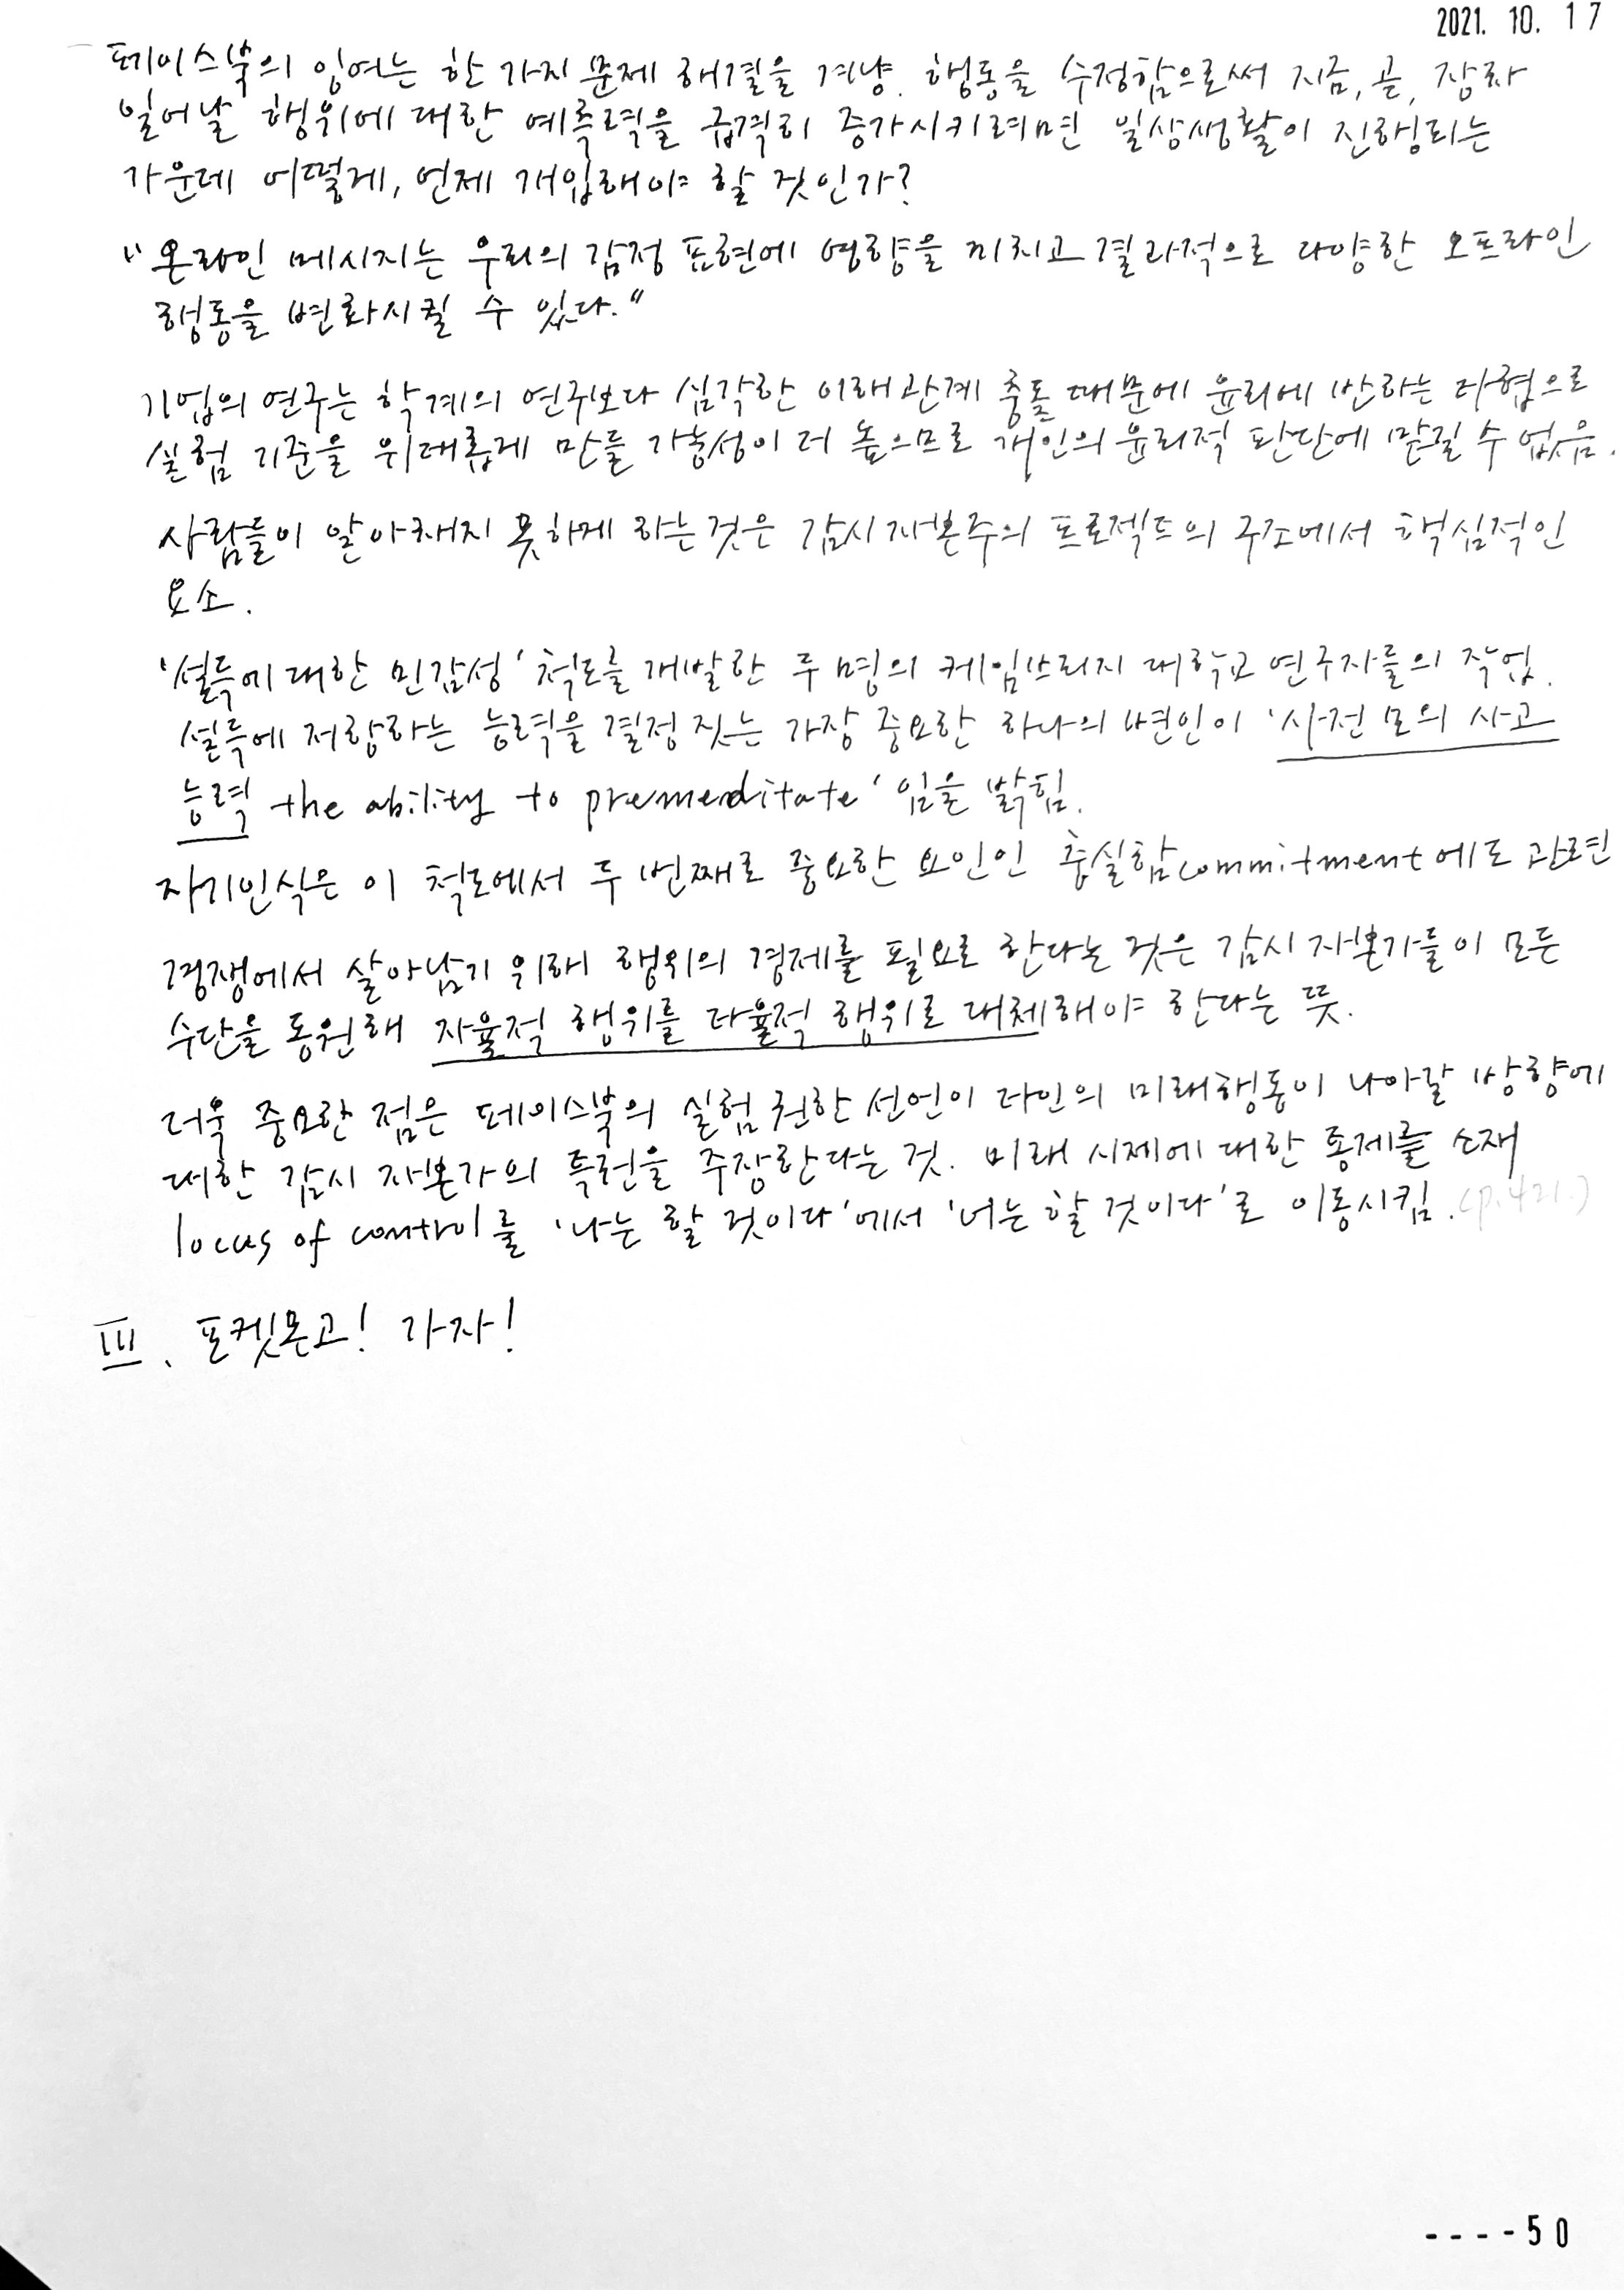 2021. 10. 17
페이스북의 잉여는 한 가지 문제 해결을 겨냥. 행동을 수정함으로써 지금, 곧, 장차
일어날 행위에 대한 예측력을 급격히 증가시키려면 일상생활이 진행되는
가운데 어떻게, 언제 개입해야 할 것인가?
"온라인 메시지는 우리의 감정 표현에 영향을 미치고 결과적으로 다양한 오프라인
행동을 변화시킬 수 있다."
기업의 연구는 학계의 연구보다 심각한 이해관계 충돌 때문에 윤리에 반하는 타협으로
실험 기준을 위태롭게 만들 가능성이 더 높으므로 개인의 윤리적 판단에 맡길 수 없음.
사람들이 알아채지 못하게 하는 것은 감시 자본주의 프로젝트의 구조에서 핵심적인
요소.
'설득에 대한 민감성' 척도를 개발한 두 명의 케임브리지 대학교 연구자들의 작업.
설득에 저항하는 능력을 결정 짓는 가장 중요한 하나의 변인이 '사전 모의 사고
능력 the ability to premeditate' 임을 밝힘.
자기인식은 이 척도에서 두 번째로 중요한 요인인 충실함commitment에도 관련
경쟁에서 살아남기 위해 행위의 경제를 필요로 한다는 것은 감시 자본가들이 모든
수단을 동원해 자율적 행위를 타율적 행위로 대체해야 한다는 뜻.
더욱 중요한 점은 페이스북의 실험 권한 선언이 타인의 미래행동이 나아갈 방향에
대한 감시 자본가의 특권을 주장한다는 것. 미래 시제에 대한 통제를 소재
locus of control를 '나는 할 것이다'에서 '너는 할 것이다'로 이동시킴. (p.421.)
III. 포켓몬고! 가자!
----50